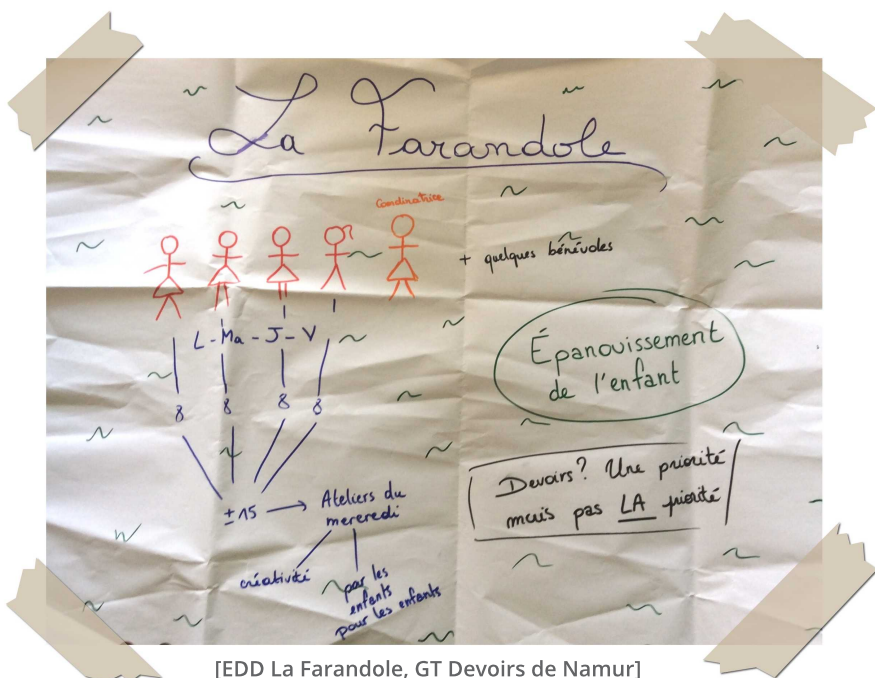 La Farandole
Coordinatrice
+ quelques bénévoles
L - Ma - J - V
Épanouissement
de l'enfant
8 8 8 8
Devoirs? Une priorité
mais pas LA priorité
± 15 → Ateliers du
mercredi
créativité
par les
enfants
pour les enfants
[EDD La Farandole, GT Devoirs de Namur]